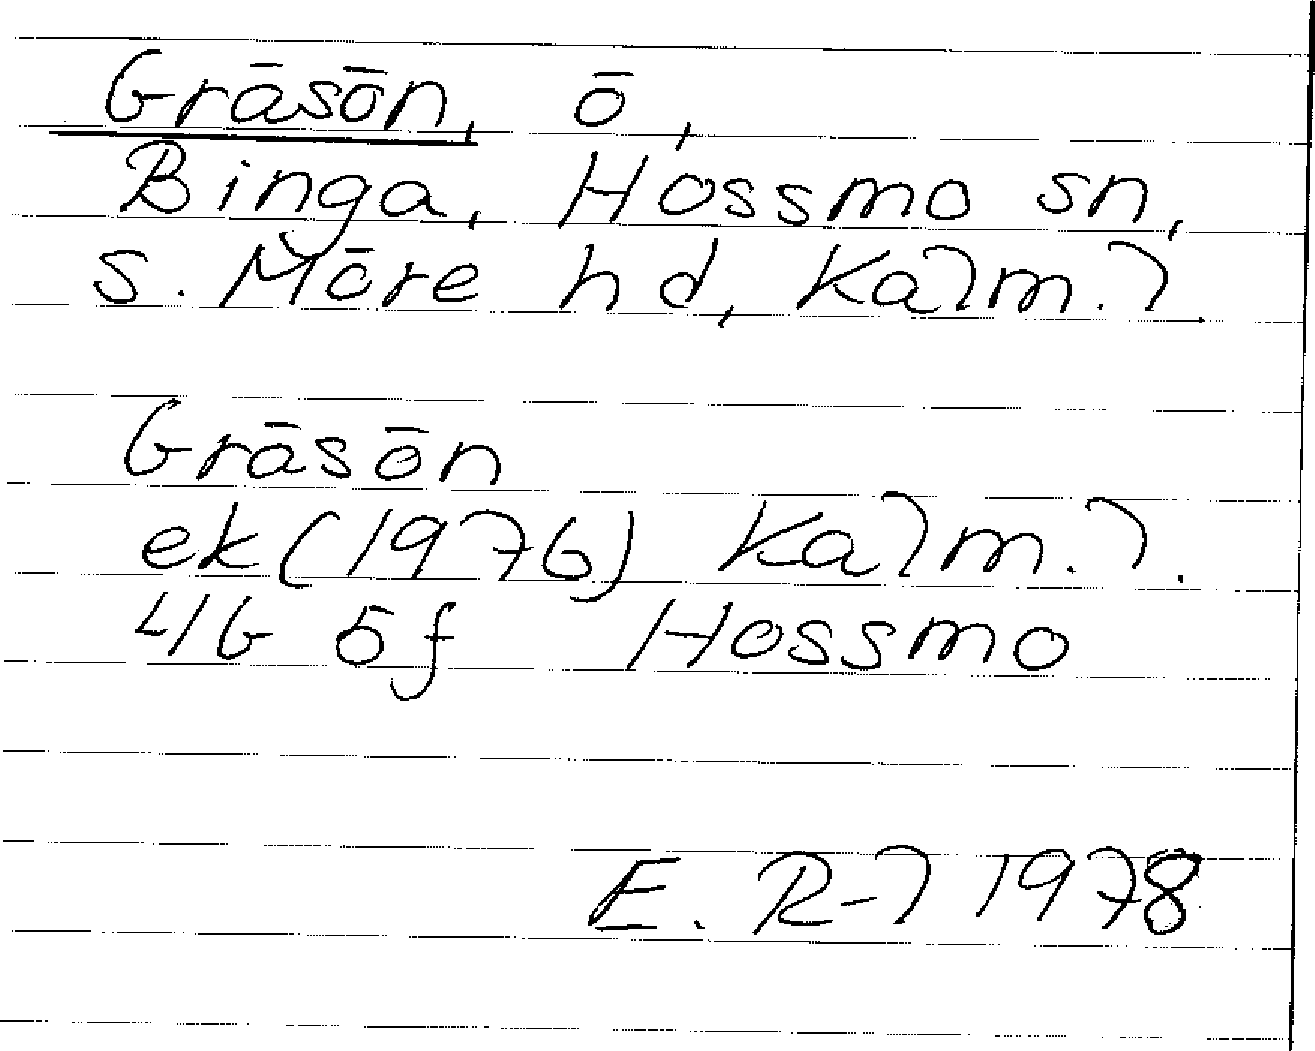 Gräsön, ö,
Binga, Hossmo sn,
S. Möre hd, Kalm. l.
Gräsön
ek (1976) Kalm. l.
4G 5f Hossmo
E. R-l 1978